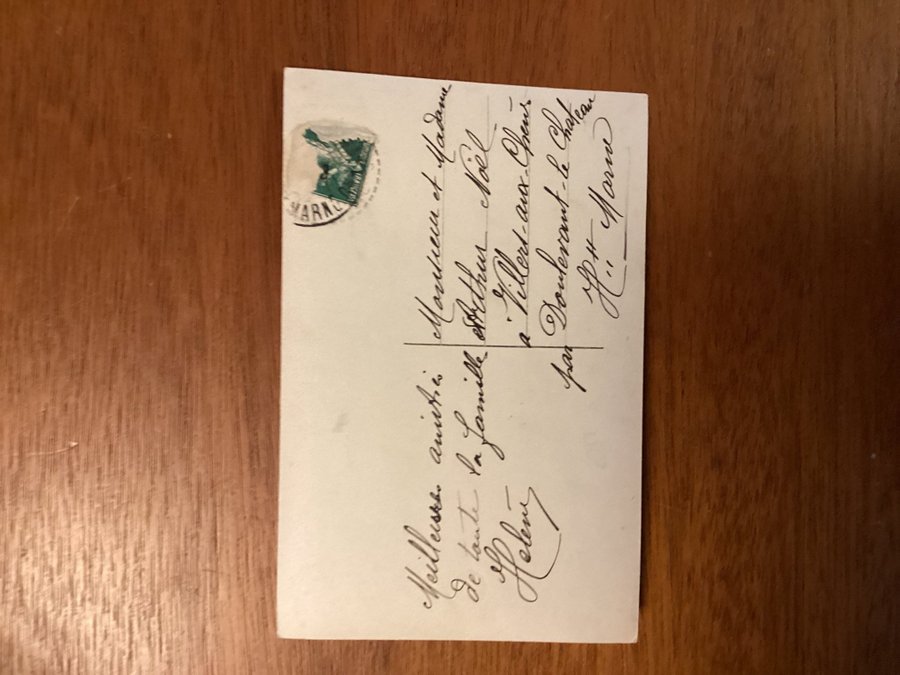 MARNE
Meilleures amitiés
de toute la famille
Helene
Monsieur et Madame
Arthur Noël
à Villers-aux-Chênes
par Doulevant-le-Château
Hte Marne